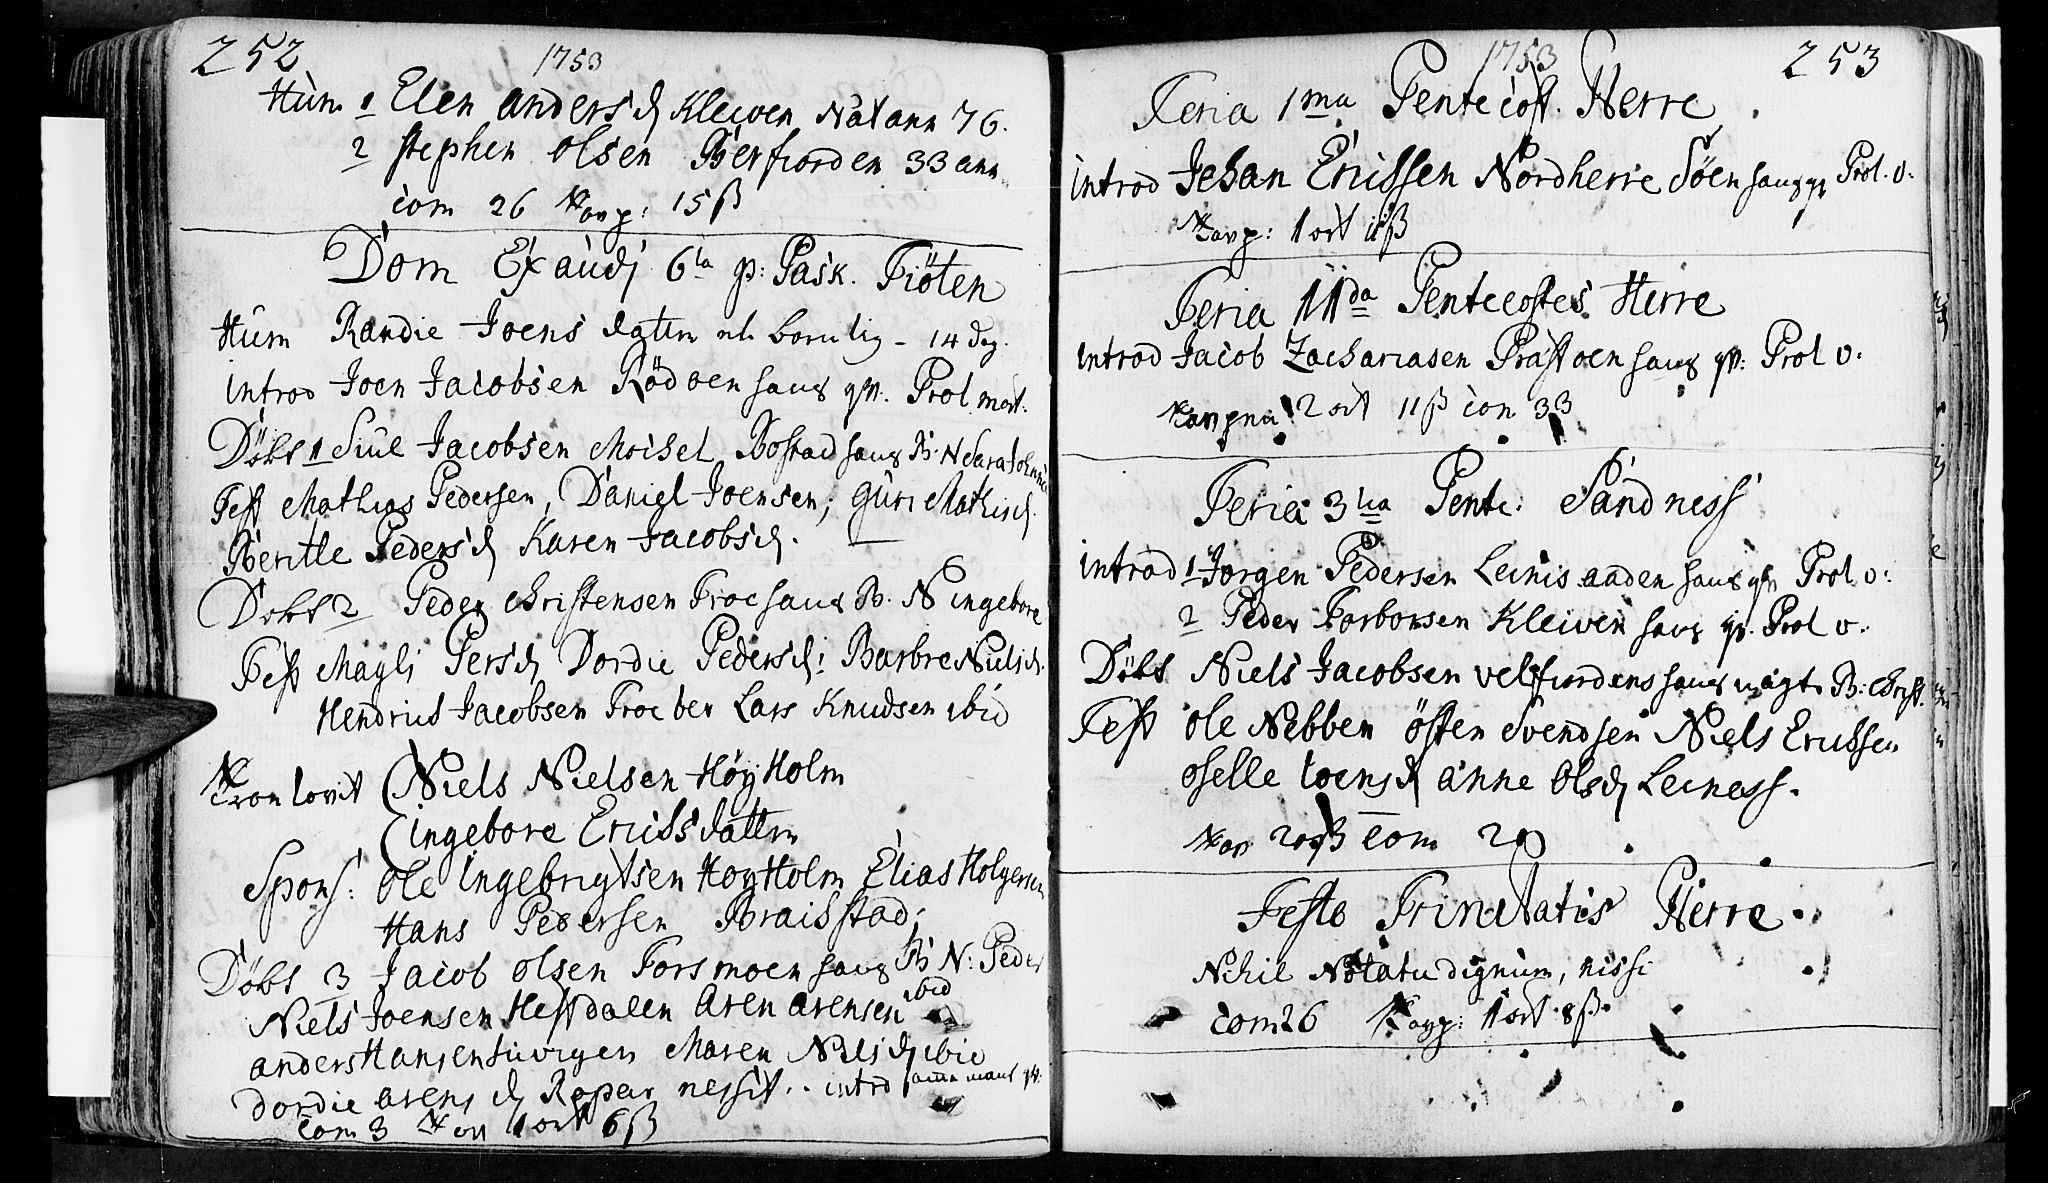 252
1753
Hum 1 Elen andersd Kleiven Nat ann 76.
2 stephen olsen Bierfiorden 33 ann
com 26 Tavp: 15 ß
Dom Exaudj 6ta p: Pask. Tiöten
Hum Randie Joens datter - 14 dg.
introd Joen Jacobsen Rödöen hans qv. Prol mort.
Döbt 1 Siul Jacobsen Moisel Bostad hans B. N Sara
Test Mathias Pedersen, Daniel Joensen; Guri Mathisd.
Beritte Pedersd Karen Jacobsd.
Döbt 2 Peder Christensen Troe hans B. N ingebore
Test Magli Persd Dordie Pedersd: Barbre Nielsd.
Hendrick Jacobsen Troe ber Lars Knudsen ibid
Trolovit (Niels Nielsen Höy Holm
(ingebore Erichsdatter
Spons: ole ingebrigtsen HoyHolm Elias Holgersen
Hans Pedersen Braisstad;
Döbt 3 Jacob olsen Forsmoen hans B N: Peder
Niels Joensen Hestdalen Aren arensen ibid
anders Hansen Maren Nielsd ibid
dordie arens d nessit.. introd
com 3 1 ort 6 ß
1753
253
Feria 1ma Pentecost. Herre.
introd Johan Erissen Nordherre Söen hans qv Prol. v:
Tavp: 1 ort 11 ß
Feria IIda Pentecostes Herre
introd Jacob Zachariasen Præstöen hans qv: Prol v:
2 ort 11 ß com 33
Feria 3tia Pente: Sandness
introd 1 Jörgen Pedersen Leinis anden hans qv Prol v:
2 Peder Torborsen Kleiven hans qv. Prol v.
Döbt Niels Jacobsen velfiordens hans B: Christ.
Test ole Nebben östen Svendsen Niels Erissen
oselle d anne olsd Leiness.
com 20
Festo Trinitatis Herre.
Nihil Notatu dignum, nissi
com 26 Tavp: 1 ort 8 ß.